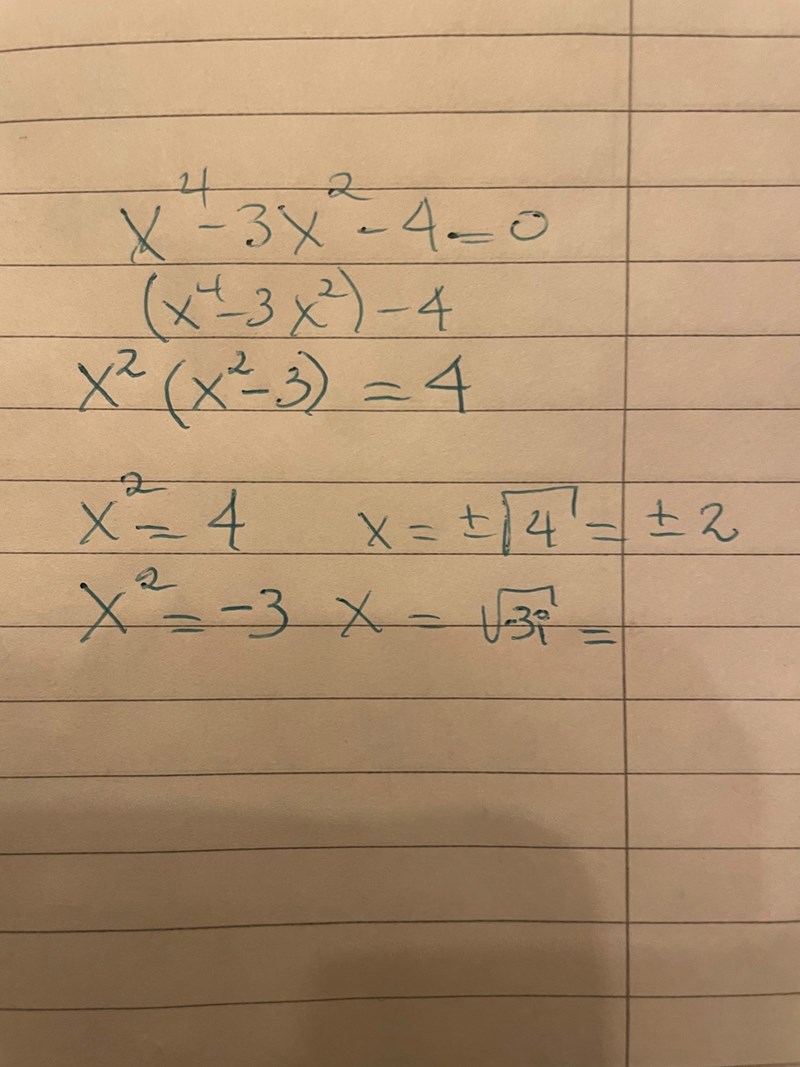 x⁴ - 3x² - 4 = 0
(x⁴ - 3x²) - 4
x² (x² - 3) = 4
x² = 4 x = ±√4 = ± 2
x² = -3 x = √-3i =